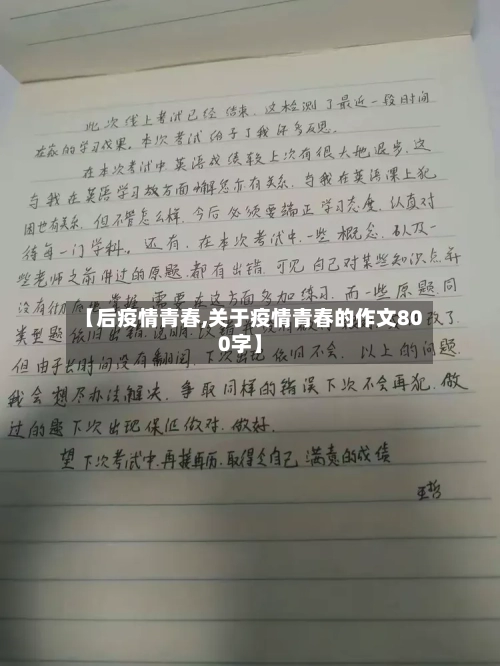 此次线上考试已经结束，这检测了最近一段时间
在家的学习成果。本次考试给予了我许多反思。
在本次考试中英语成绩较上次有很大地退步，这
与我在英语学习故方面懈怠尔有关系，与我在英语课上犯
困也有关系，但不管怎么样，今后必须要端正学习态度，认真对
待每一门学科。还有，在本次考试中，一些概念，以及一
些老师之前讲过的原题都有出错，可见自己对某些知识点并
没有彻底掌握，需要在这方面多加练习，而一些原题同
【后疫情青春,关于疫情青春的作文80
0字】
类型题依旧出错，说明
改了，
但由于长时间没有翻阅，下次出现依旧不会，以上的问题，
我会想尽办法解决，争取同样的错误下次不会再犯，做
过的题下次出现保证做对，做好。
望下次考试中，再接再厉，取得令自己满意的成绩
王哲